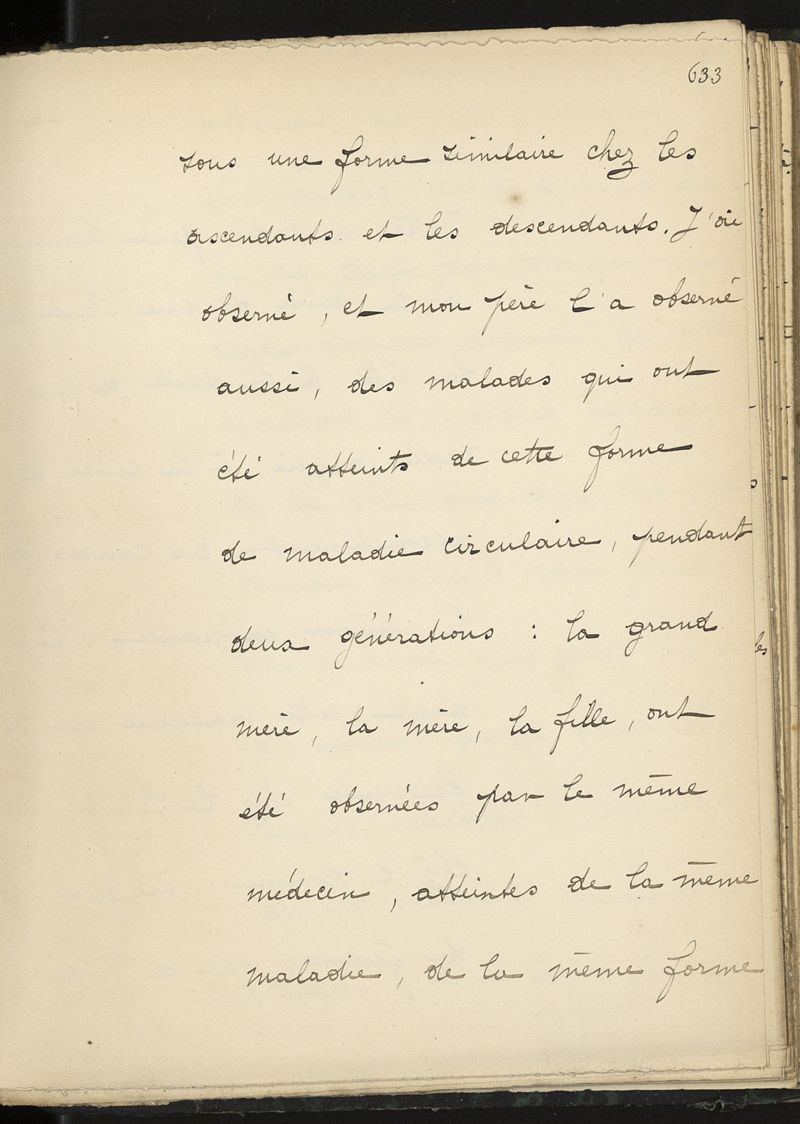 633
sous une forme similaire chez les
ascendants et les descendants. J'ai
observé, et mon père l'a observé
aussi, des malades qui ont
été atteints de cette forme
de maladie circulaire, pendant
deux générations : la grand
mère, la mère, la fille, ont
été observées par le même
médecin, atteintes de la même
maladie, de la même forme
les